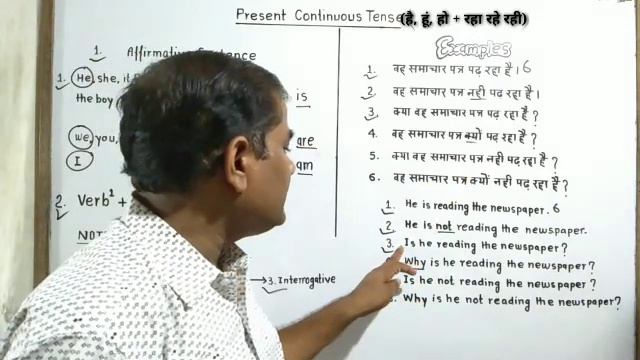 Present Continuous Tense (है, हूं, हो + रहा रहे रही)
1. Affirmative Sentence
1. He, she, it
the boy is
we, you, are
I am
2. Verb¹ +
NOT
→3. Interrogative
Examples
1. वह समाचार पत्र पढ़ रहा है। 6
2. वह समाचार पत्र नही पढ़ रहा है।
3. क्या वह समाचार पत्र पढ़ रहा है?
4. वह समाचार पत्र क्यों पढ़ रहा है?
5. क्या वह समाचार पत्र नही पढ़ रहा है?
6. वह समाचार पत्र क्यों नही पढ़ रहा है?
1. He is reading the newspaper. 6
2. He is not reading the newspaper.
3. Is he reading the newspaper?
Why is he reading the newspaper?
Is he not reading the newspaper?
Why is he not reading the newspaper?